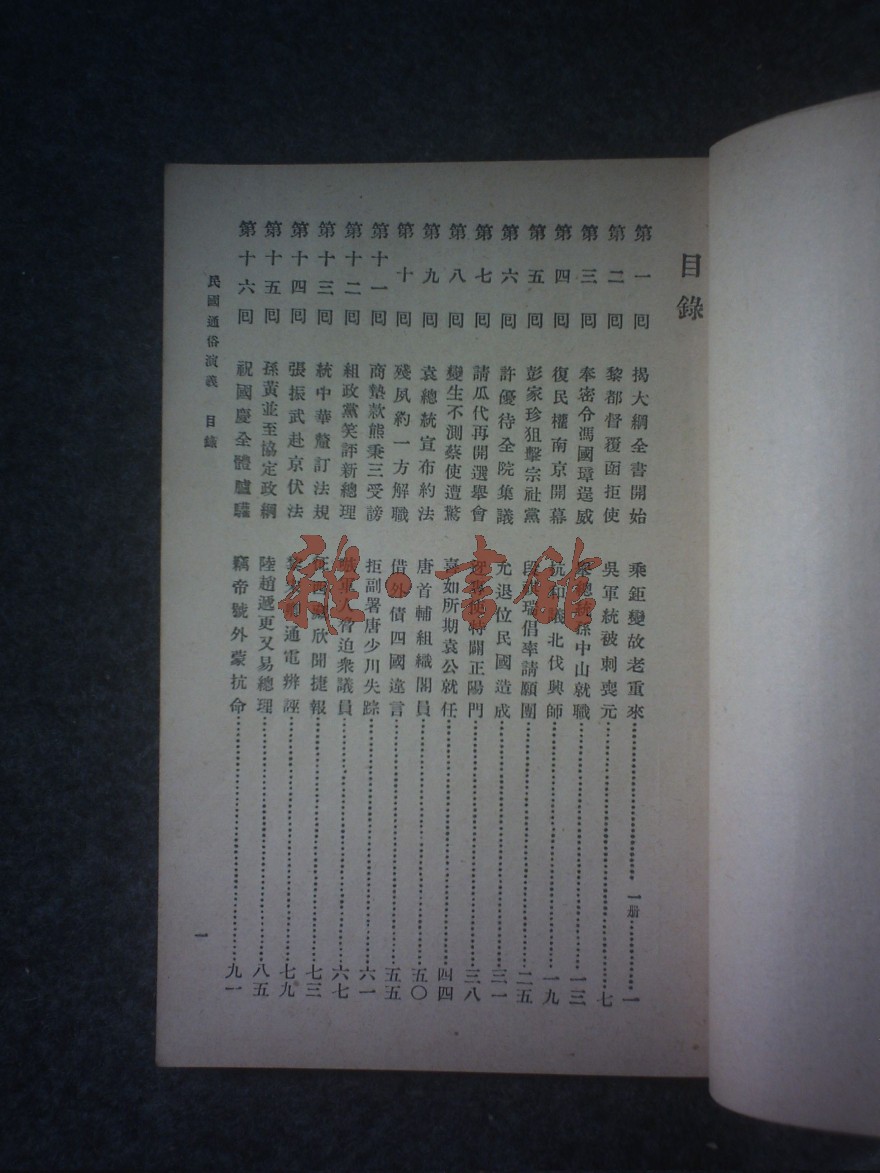 目錄
第一回 揭大綱全書開始 乘鉅變故老重來 一册 一
第二回 黎都督覆函拒使 吳軍統被刺喪元 七
第三回 奉密令馮國璋逞威 總統孫中山就職 一三
第四回 復民權南京開幕 抗和議北伐興師 一九
第五回 彭家珍狙擊宗社黨 段祺瑞倡率請願團 二五
第六回 許優待全院集議 允退位民國造成 三一
第七回 請瓜代再開選舉會 特闢正陽門 三八
第八回 變生不測蔡使遭驚 喜如所期袁公就任 四四
第九回 袁總統宣布約法 唐首輔組織閣員 五〇
第十回 殘夙約一方解職 借外債四國違言 五五
第十一回 商墊款熊秉三受謗 拒副署唐少川失踪 六一
第十二回 組政黨笑評新總理 人脅迫衆議員 六七
第十三回 統中華釐訂法規 欣聞捷報 七三
第十四回 張振武赴京伏法 通電辨誣 七九
第十五回 孫黃並至協定政綱 陸趙遞更又易總理 八五
第十六回 祝國慶全體臚驩 竊帝號外蒙抗命 九一
民國通俗演義 目錄
一
雜·書館